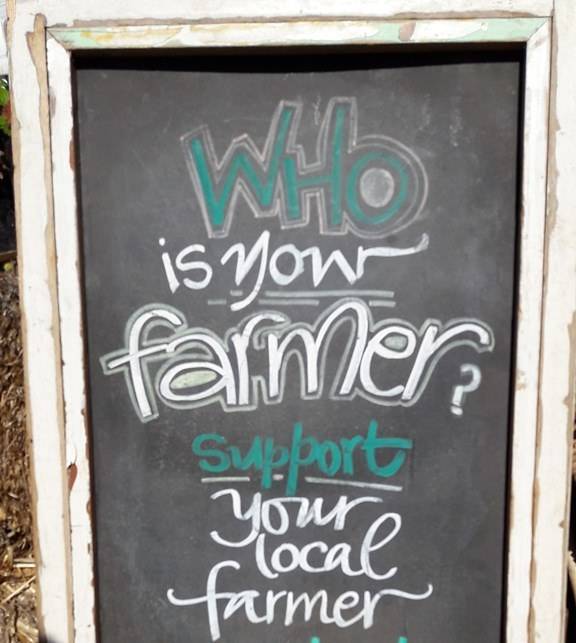 WHO
is your
farmer?
support
your
local
farmer